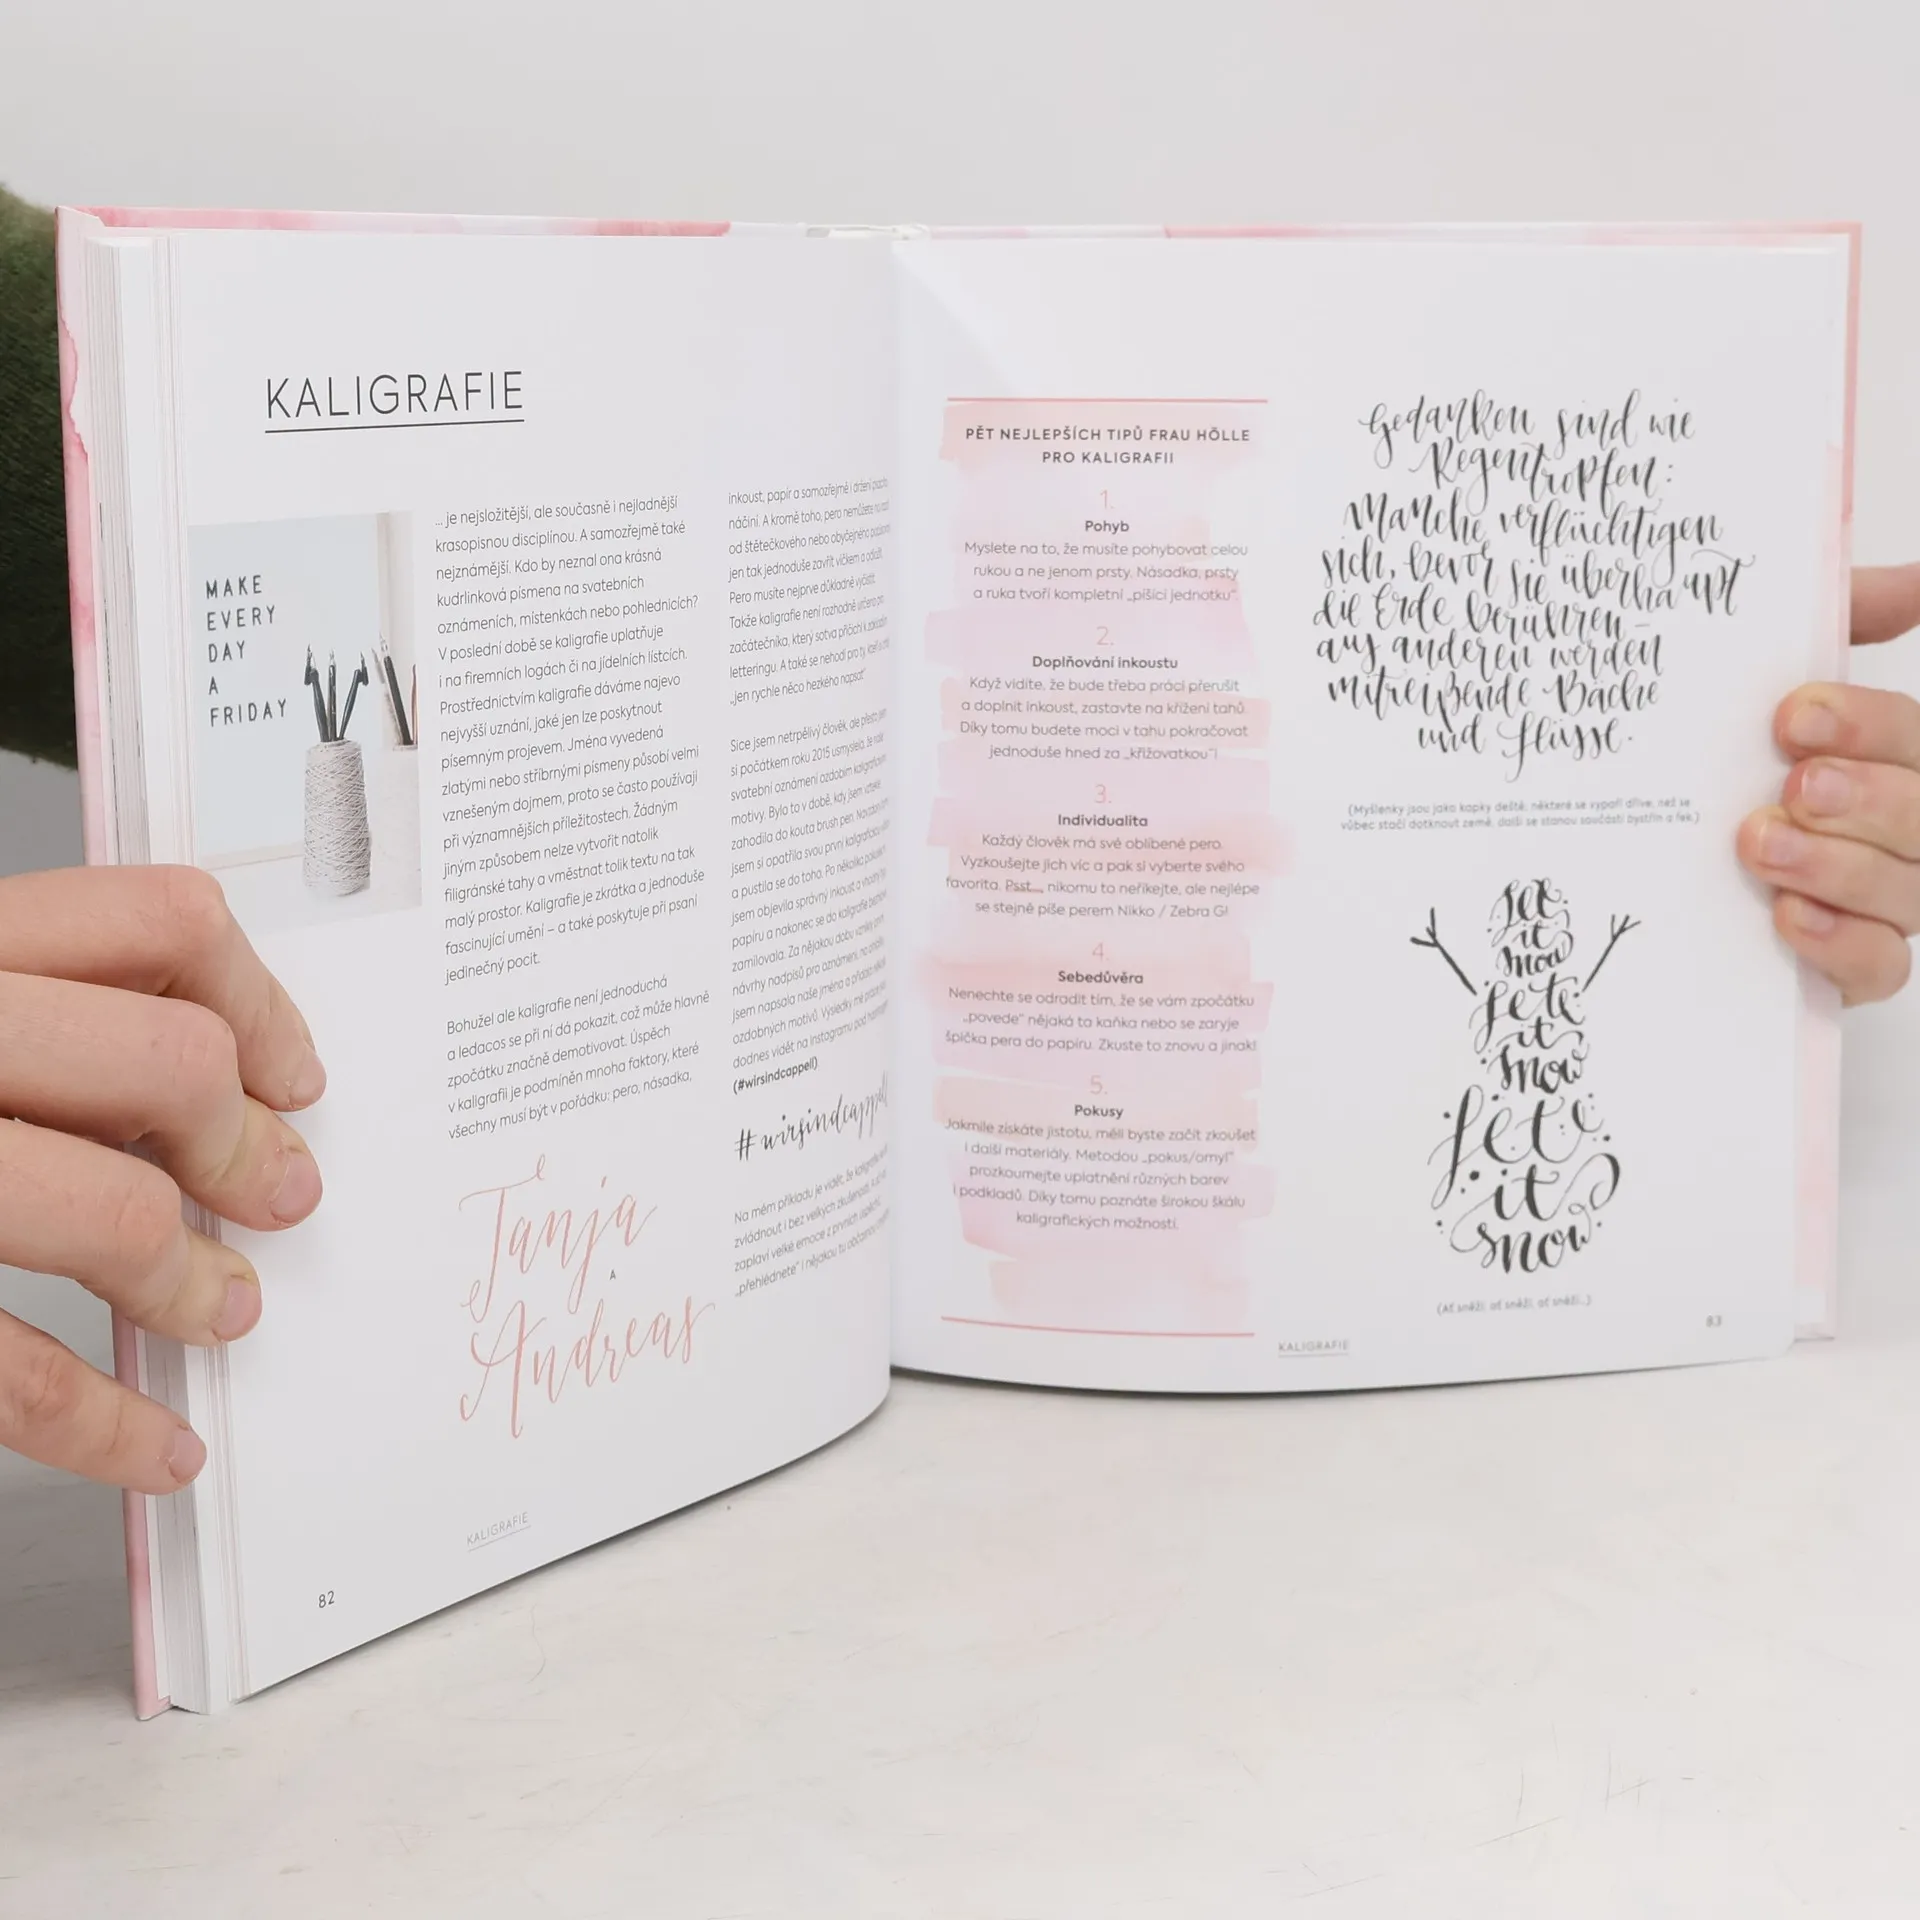 KALIGRAFIE
MAKE
EVERY
DAY
A
FRIDAY
... je nejsložitější, ale současně i nejladnější
krasopisnou disciplínou. A samozřejmě také
nejznámější. Kdo by neznal ona krásná
kudrlinková písmena na svatebních
oznámeních, místenkách nebo pohlednicích?
V poslední době se kaligrafie uplatňuje
i na firemních logách či na jídelních lístcích.
Prostřednictvím kaligrafie dáváme najevo
nejvyšší uznání, jaké jen lze poskytnout
písemným projevem. Jména vyvedená
zlatými nebo stříbrnými písmeny působí velmi
vznešeným dojmem, proto se často používají
při významnějších příležitostech. Žádným
jiným způsobem nelze vytvořit natolik
filigránské tahy a vměstnat tolik textu na tak
malý prostor. Kaligrafie je zkrátka a jednoduše
fascinující umění – a také poskytuje při psaní
jedinečný pocit.
Bohužel ale kaligrafie není jednoduchá
a ledacos se při ní dá pokazit, což může hlavně
zpočátku značně demotivovat. Úspěch
v kaligrafii je podmíněn mnoha faktory, které
všechny musí být v pořádku: pero, násadka,
Tanja
A
Andreas
inkoust, papír a samozřejmě i držení
náčiní. A kromě toho, pero nemůžete
od štětečkového nebo obyčejného
jen tak jednoduše zavřít víčkem a odložit.
Pero musíte nejprve důkladně vyčistit.
Takže kaligrafie není rozhodně určena pro
začátečníka, který sotva přičichl k
letteringu. A také se nehodí pro ty, kteří
„jen rychle něco hezkého napsat“.
Sice jsem netrpělivý člověk, ale přesto jsem
si počátkem roku 2015 usmyslela, že naše
svatební oznámení ozdobím kaligrafickými
motivy. Bylo to v době, kdy jsem vztekle
zahodila do kouta brush pen. Navzdory
jsem si opatřila svou první kaligrafickou
a pustila se do toho. Po několika pokusech
jsem objevila správný inkoust a vhodný typ
papíru a nakonec se do kaligrafie
zamilovala. Za nějakou dobu vznikly první
návrhy nadpisů pro oznámení, na
jsem napsala naše jména a přidala
ozdobných motivů. Výsledky mé práce
dodnes vidět na Instagramu pod
(#wirsindcappell)
#wirsindcappell
Na mém příkladu je vidět, že kaligrafie
zvládnout i bez velkých zkušeností.
zaplaví velké emoce z prvních úspěchů,
„přehlédnete“ i nějakou tu
KALIGRAFIE
82
PĚT NEJLEPŠÍCH TIPŮ FRAU HÖLLE
PRO KALIGRAFII
1.
Pohyb
Myslete na to, že musíte pohybovat celou
rukou a ne jenom prsty. Násadka, prsty
a ruka tvoří kompletní „píšící jednotku“.
2.
Doplňování inkoustu
Když vidíte, že bude třeba práci přerušit
a doplnit inkoust, zastavte na křížení tahů.
Díky tomu budete moci v tahu pokračovat
jednoduše hned za „křižovatkou“!
3.
Individualita
Každý člověk má své oblíbené pero.
Vyzkoušejte jich víc a pak si vyberte svého
favorita. Psst..., nikomu to neříkejte, ale nejlépe
se stejně píše perem Nikko / Zebra G!
4.
Sebedůvěra
Nenechte se odradit tím, že se vám zpočátku
„povede“ nějaká ta kaňka nebo se zaryje
špička pera do papíru. Zkuste to znovu a jinak!
5.
Pokusy
Jakmile získáte jistotu, měli byste začít zkoušet
i další materiály. Metodou „pokus/omyl“
prozkoumejte uplatnění různých barev
i podkladů. Díky tomu poznáte širokou škálu
kaligrafických možností.
Gedanken sind wie
Regentropfen:
Manche verflüchtigen
sich, bevor sie überhaupt
die Erde berühren –
aus anderen werden
mitreißende Bäche
und Flüsse.
(Myšlenky jsou jako kapky deště, některé se vypaří dříve, než se
vůbec stačí dotknout země, další se stanou součástí bystřin a řek.)
let
it
snow
let
it
snow
let
it
snow
(Ať sněží, ať sněží, ať sněží...)
KALIGRAFIE
83